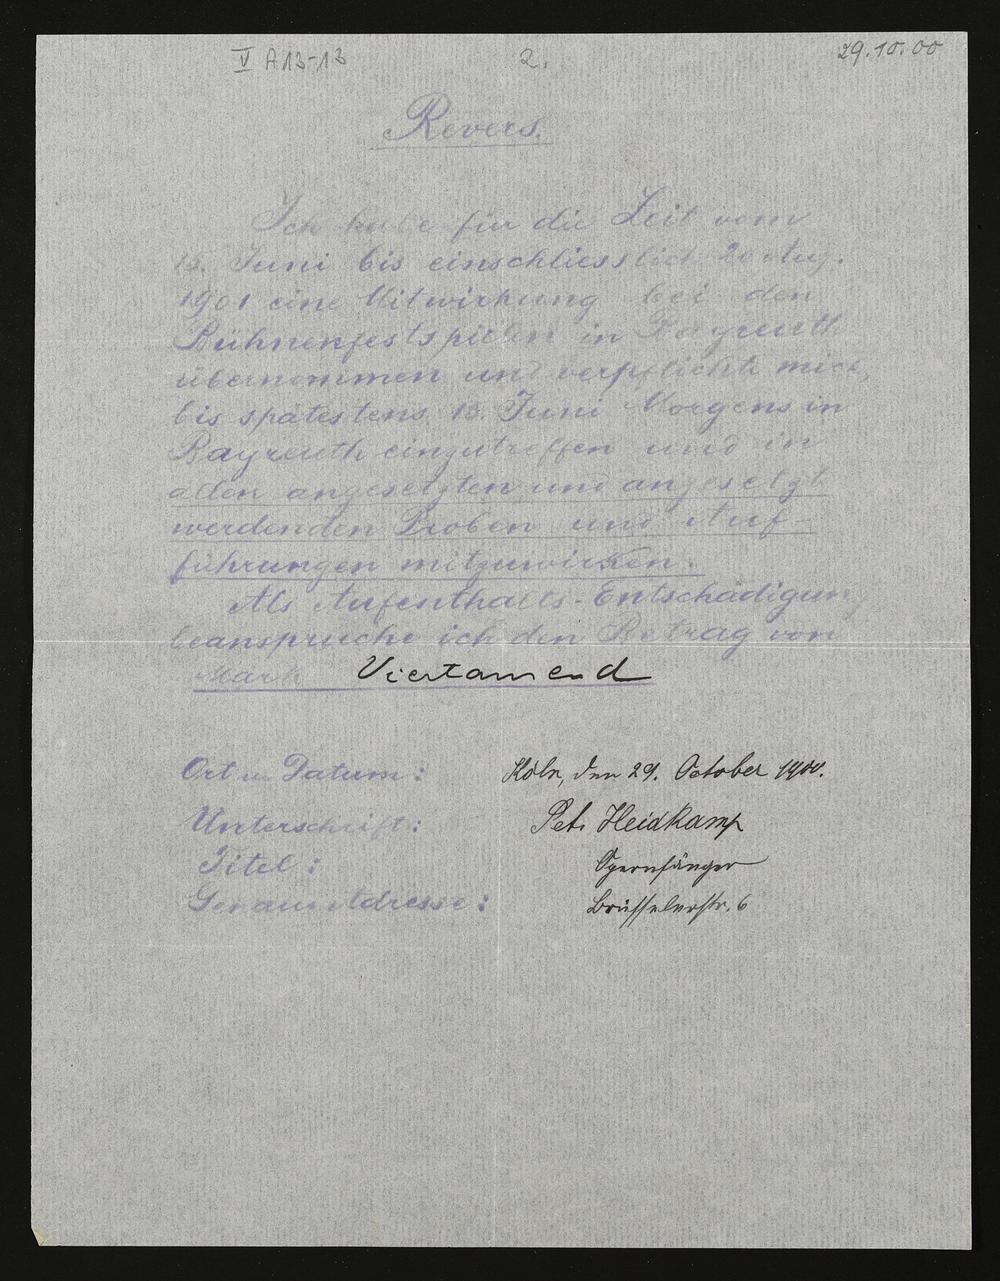 V A 13-13 2. 29.10.00
Revers.
Ich habe für die Zeit vom
15. Juni bis einschliesslich 20 Aug.
1901 eine Mitwirkung bei den
Bühnenfestspielen in Bayreuth
übernommen und verpflichte mich,
bis spätestens 15. Juni Morgens in
Bayreuth einzutreffen und in
allen angesetzten und angesetzt
werdenden Proben und Auf-
führungen mitzuwirken.
Als Aufenthalts-Entschädigung
beanspruche ich den Betrag von
Mark Viertausend
Ort u. Datum: Köln, den 29. October 1900.
Unterschrift: Pet. Heidkamp
Titel: Opernsänger
Genaue Adresse: Brüsselerstr. 6